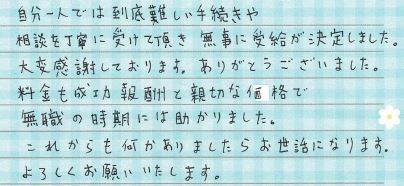 自分一人では到底難しい手続きや
相談を丁寧に受けて頂き無事に受給が決定しました。
大変感謝しております。ありがとうございました。
料金も成功報酬と親切な価格で
無職の時期には助かりました。
これからも何かありましたらお世話になります。
よろしくお願いいたします。